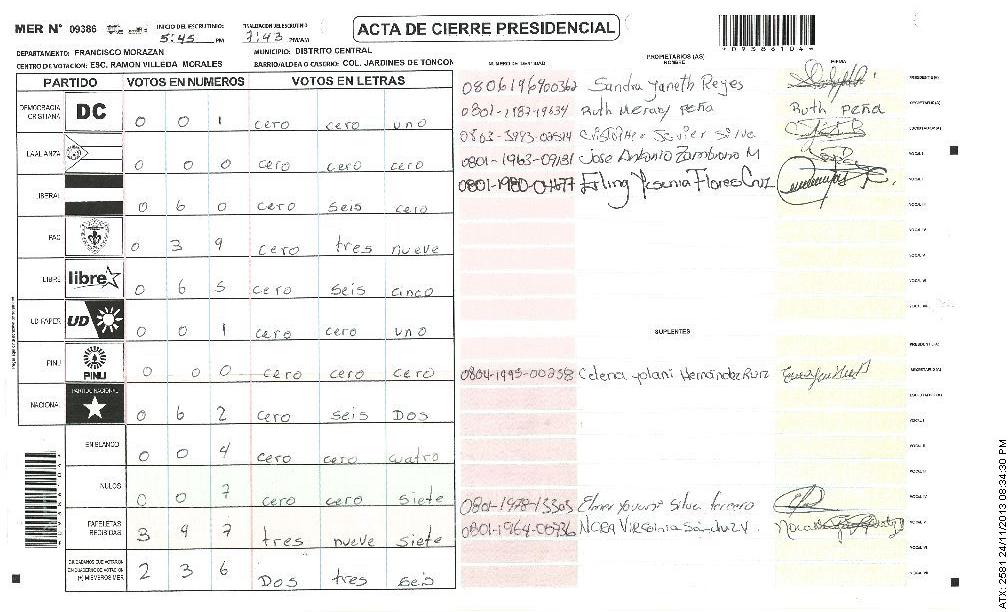 MER Nº 09386
INICIO DEL ESCRUTINIO: 5:45 PM
FINALIZACION DEL ESCRUTINIO 7:43 PM/AM
ACTA DE CIERRE PRESIDENCIAL
*09386104*
DEPARTAMENTO: FRANCISCO MORAZAN MUNICIPIO: DISTRITO CENTRAL
CENTRO DE VOTACION: ESC. RAMON VILLEDA MORALES BARRIO/ALDEA O CASERIO: COL. JARDINES DE TONCON
PARTIDO VOTOS EN NUMEROS VOTOS EN LETRAS
DEMOCRACIA CRISTIANA DC 0 0 1 cero cero uno
LA ALIANZA 0 0 0 cero cero cero
LIBERAL 0 6 0 cero seis cero
PAC 0 3 9 cero tres nueve
LIBRE libre 0 6 5 cero seis cinco
UD FAPER UD 0 0 1 cero cero uno
PINU PINU 0 0 0 cero cero cero
NACIONAL PARTIDO NACIONAL 0 6 2 cero seis Dos
EN BLANCO 0 0 4 cero cero cuatro
NULOS 0 0 7 cero cero siete
PAPELETAS RECIBIDAS 3 9 7 tres nueve siete
CIUDADANOS QUE VOTARON EN CUADERNO DE VOTACION (+) MIEMBROS MER 2 3 6 Dos tres seis
NUMERO DE IDENTIDAD PROPIETARIOS (AS) NOMBRE FIRMA
0806196900362 Sandra Yaneth Reyes PRESIDENTE(A)
0801-1987-19634 Ruth Merary Peña Ruth Peña SECRETARIO(A)
Javier Silva ESCRUTADOR(A)
0801-1963-09131 Jose Antonio Zambrano M VOCAL I
0801-1980-04677 Erling Yesenia Flores Cruz VOCAL II
VOCAL III
VOCAL IV
VOCAL V
VOCAL VI
VOCAL VII
SUPLENTES
PRESIDENTE(A)
0804-1995-00258 Celena Yolani Hernández Ruiz SECRETARIO(A)
ESCRUTADOR(A)
VOCAL I
VOCAL II
VOCAL III
0801-1978-13303 Silva VOCAL IV
0801-1964-00736 VOCAL V
VOCAL VI
VOCAL VII
ATX: 2581 24/11/2013 08:34:30 PM